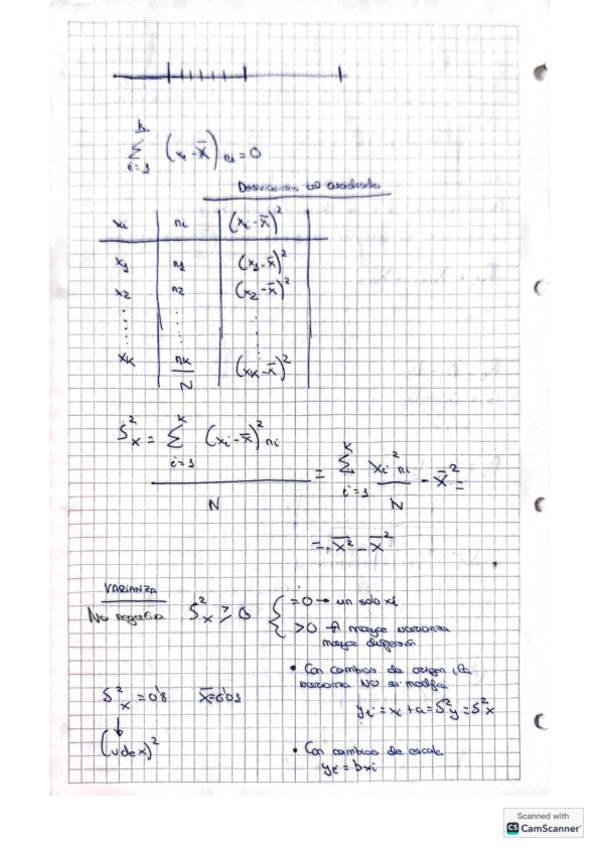 K
Σ (xi - x̄) ni = 0
i=1
Desviación al cuadrado
xi | ni | (xi - x̄)²
x1 | n1 | (x1 - x̄)²
x2 | n2 | (x2 - x̄)²
xK | nK | (xK - x̄)²
N
S²x = Σ (xi - x̄)² ni / N = Σ xi² ni / N - x̄² =
K
i=1
K
i=1
= x̄² - x̄²
VARIANZA
No negativa S²x ≥ 0 { = 0 → un solo xi
> 0 → A mayor varianza
mayor dispersión
• Con cambios de origen, la
varianza NO se modifica
yi = xi + a = S²y = S²x
S²x = 0'8
(u de x)²
• Con cambios de escala
yi = bxi
Scanned with
CS CamScanner